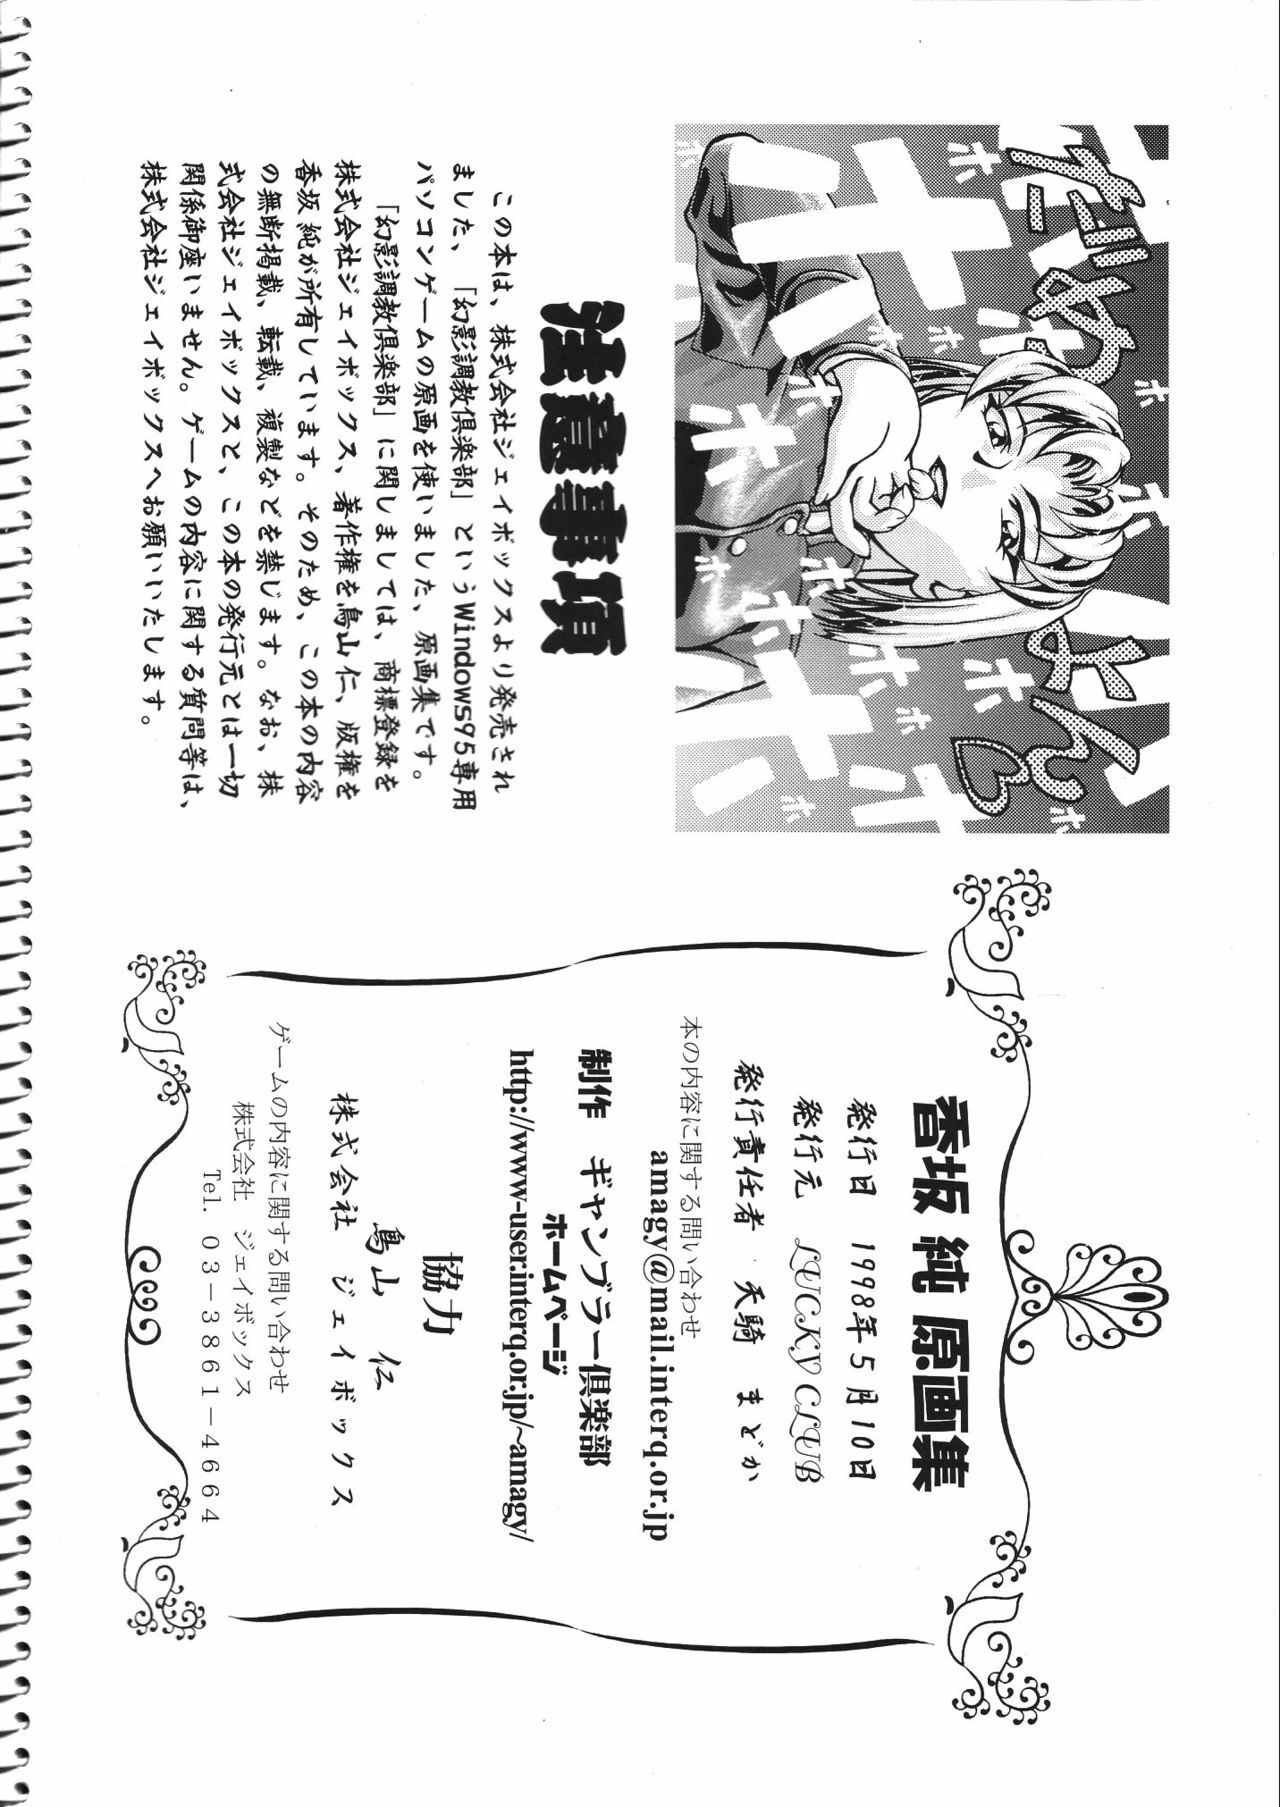 だめよん♡
ホホホホホ
注意事項
この本は、株式会社ジェイボックスより発売され
ました、「幻影調教倶楽部」というWindows95専用
パソコンゲームの原画を使いました、原画集です。
「幻影調教倶楽部」に関しましては、商標登録を
株式会社ジェイボックス、著作権を鳥山仁、版権を
香坂 純が所有しています。そのため、この本の内容
の無断掲載、転載、複製などを禁じます。なお、株
式会社ジェイボックスと、この本の発行元とは一切
関係御座いません。ゲームの内容に関する質問等は、
株式会社ジェイボックスへお願いいたします。
香坂 純 原画集
発行日 1998年5月10日
発行元 LUCKY CLUB
発行責任者・天騎 まどか
本の内容に関する問い合わせ
amagy@mail.interq.or.jp
制作 ギャンブラー倶楽部
ホームページ
http://www-user.interq.or.jp/~amagy/
協力
鳥山 仁
株式会社 ジェイボックス
ゲームの内容に関する問い合わせ
株式会社 ジェイボックス
Tel. 03-3861-4664